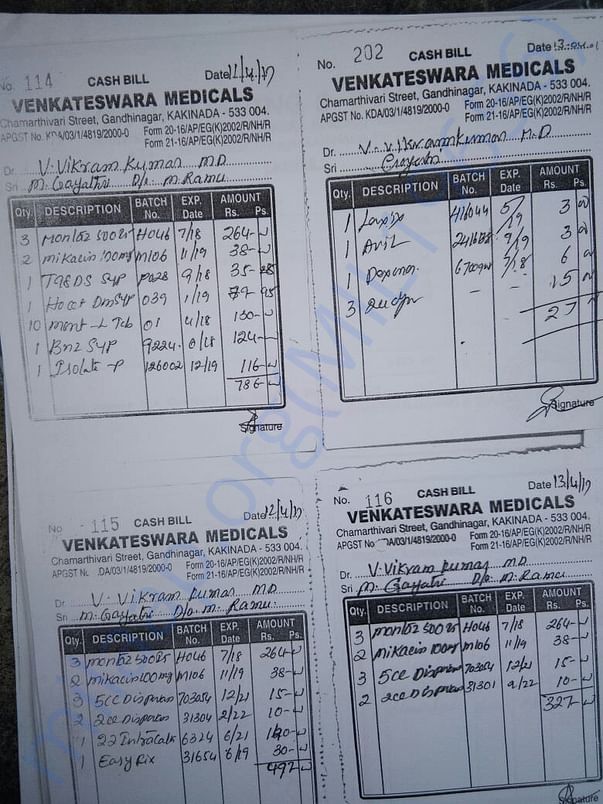 No. 114 CASH BILL Date 12/4/17
VENKATESWARA MEDICALS
Chamarthivari Street, Gandhinagar, KAKINADA - 533 004.
APGST No. KDA/03/1/4819/2000-0 Form 20-16/AP/EG(K)2002/R/NH/R
Form 21-16/AP/EG(K)2002/R/NH/R
Dr. V. Vikram Kumar M D
Sri M. Gayathri D/o M. Ramu
Qty. DESCRIPTION BATCH No. EXP. Date AMOUNT Rs. Ps.
3 H046 7/18 264
2 mikacin 100mg M106 11/19 38
1 Syp 9/18 35
1 039 1/19
10 mont-L Tab 01 4/18 130
1 Bnz Syp 9224 124
1 Isolate-P 126002 12/19 116
786
Signature
No. 202 CASH BILL Date
VENKATESWARA MEDICALS
Chamarthivari Street, Gandhinagar, KAKINADA - 533 004.
APGST No. KDA/03/1/4819/2000-0 Form 20-16/AP/EG(K)2002/R/NH/R
Form 21-16/AP/EG(K)2002/R/NH/R
Dr. V. Vikram Kumar M.D
Sri
Qty. DESCRIPTION BATCH No. EXP. Date AMOUNT Rs. Ps.
1 41044 5/19 3
1 Avil 9/19 3
1 6
3 15
27
Signature
No 115 CASH BILL Date 12/4/17
VENKATESWARA MEDICALS
Chamarthivari Street, Gandhinagar, KAKINADA - 533 004.
DA/03/1/4819/2000-0 Form 20-16/AP/EG(K)2002/R/NH/R
Form 21-16/AP/EG(K)2002/R/NH/R
Dr. V. Vikram Kumar M D
Sri M. Gayatri D/o M. Ramu
Qty. DESCRIPTION BATCH No. EXP. Date AMOUNT Rs. Ps.
3 H046 7/18 264
2 mikacin 100mg M106 11/19 38
3 5cc Dispovan 703054 12/21 15
2 2cc Dispovan 31304 2/22 10
1 22 Intracath 6324 6/21
1 Easy Fix 31654 6/19 30
Signature
No. 116 CASH BILL Date 13/4/17
VENKATESWARA MEDICALS
Chamarthivari Street, Gandhinagar, KAKINADA - 533 004.
APGST No. DA/03/1/4819/2000-0 Form 20-16/AP/EG(K)2002/R/NH/R
Form 21-16/AP/EG(K)2002/R/NH/R
Dr. V. Vikram Kumar M D
Sri M. Gayatri D/o M. Ramu
Qty. DESCRIPTION BATCH No. EXP. Date AMOUNT Rs. Ps.
3 H046 7/18 264
2 mikacin 100mg M106 11/19 38
3 5cc Dispovan 703054 12/21 15
2 2cc Dispovan 31301 2/22 10
327
Signature